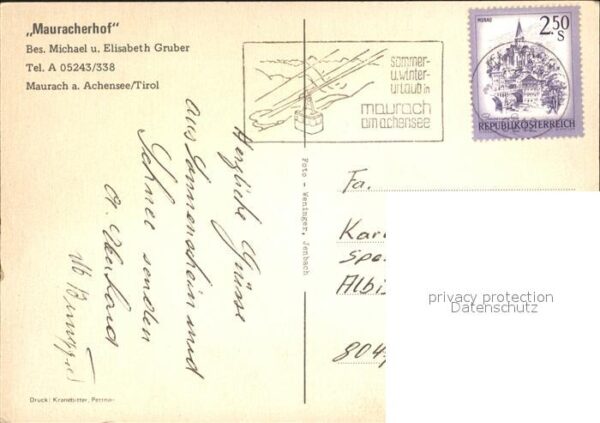 „Mauracherhof"
Bes. Michael u. Elisabeth Gruber
Tel. A 05243/338
Maurach a. Achensee/Tirol
sommer-
u. winter-
urlaub in
maurach
am achensee
MURAU
2.50
S
REPUBLIK ÖSTERREICH
Herzliche Grüsse
aus Sonnenschein und
Schnee senden
Foto - Weninger, Jenbach
Fa.
Kar
Spe
Albis
804
privacy protection
Datenschutz
Druck: Kranebitter, Pertisau